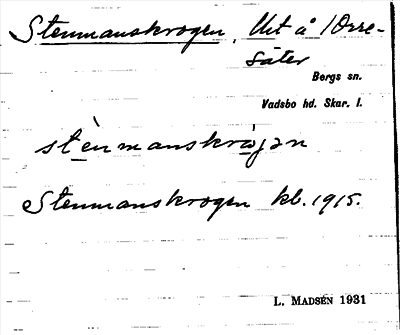 Stenmanskrogen, Urt å 1 Orre-
säter
Bergs sn.
Vadsbo hd. Skar. l.
stènmanskrωjan
Stenmanskrogen kb. 1915.
L. MADSÉN 1931